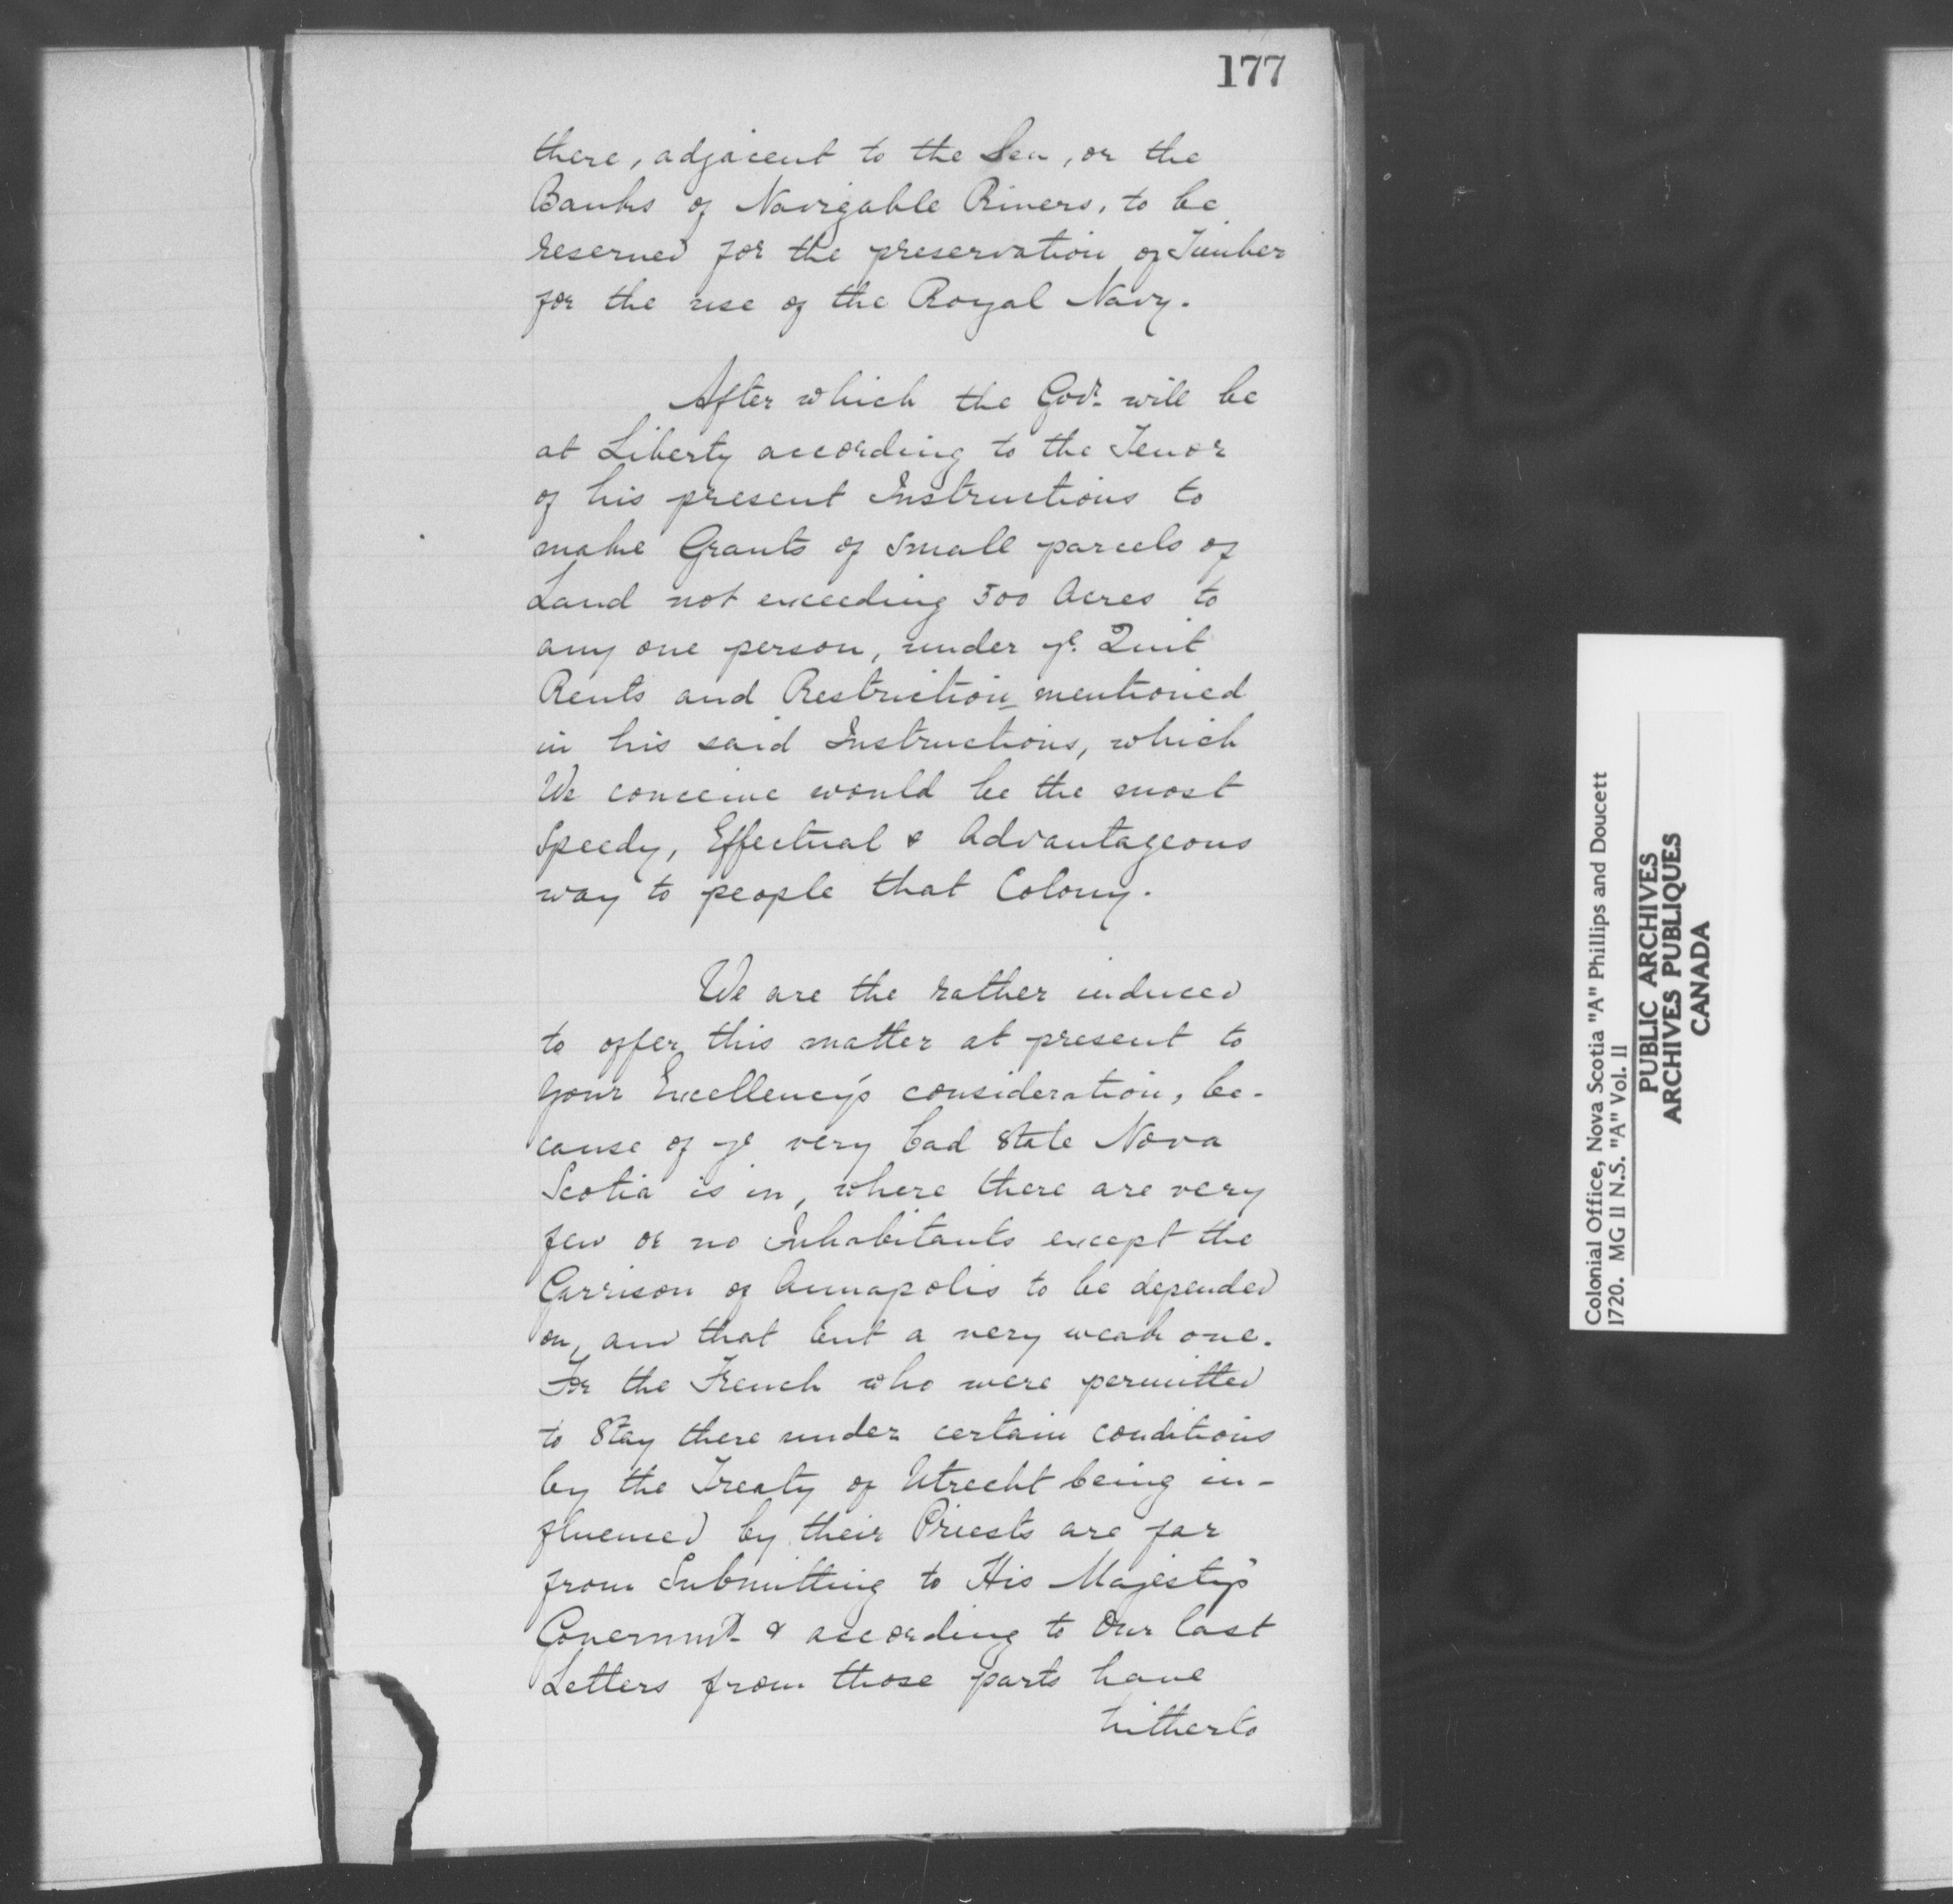 177
there, adjacent to the Sea, or the
Banks of Navigable Rivers, to be
reserved for the preservation of Timber
for the use of the Royal Navy.
After which the Govr. will be
at Liberty according to the Tenor
of his present Instructions to
make Grants of Small parcels of
Land not exceeding 500 Acres to
any one person, under ye. Quit
Rents and Restriction mentioned
in his said Instructions, which
We conceive would be the most
Speedy, Effectual & Advantageous
way to people that Colony.
We are the rather induced
to offer this matter at present to
Your Excellency's consideration, be-
cause of ye very bad State Nova
Scotia is in, where there are very
few or no Inhabitants except the
Garrison of Annapolis to be depended
on, and that but a very weak one.
For the French who were permitted
to Stay there under certain conditions
by the Treaty of Utrecht being in-
fluenced by their Priests are far
from Submitting to His Majesty's
Governmt. & according to Our last
Letters from those parts have
hitherto
Colonial Office, Nova Scotia "A" Phillips and Doucett
1720. MG 11 N.S. "A" Vol. 11
PUBLIC ARCHIVES
ARCHIVES PUBLIQUES
CANADA